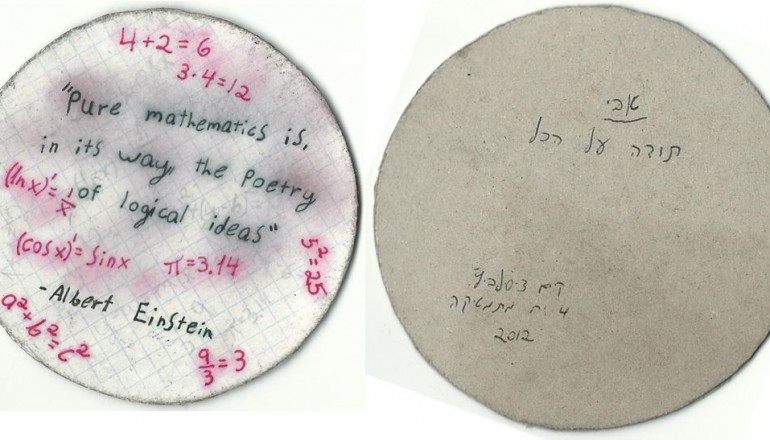 4+2=6
3·4=12
"Pure mathematics is,
in its way, the poetry
of logical ideas"
(lnx)'=1/x
(cosx)'=sinx
π=3.14
5²=25
-Albert Einstein
a²+b²=c²
9/3=3
אבי
תודה על הכל
4 יח מתמטיקה
2012